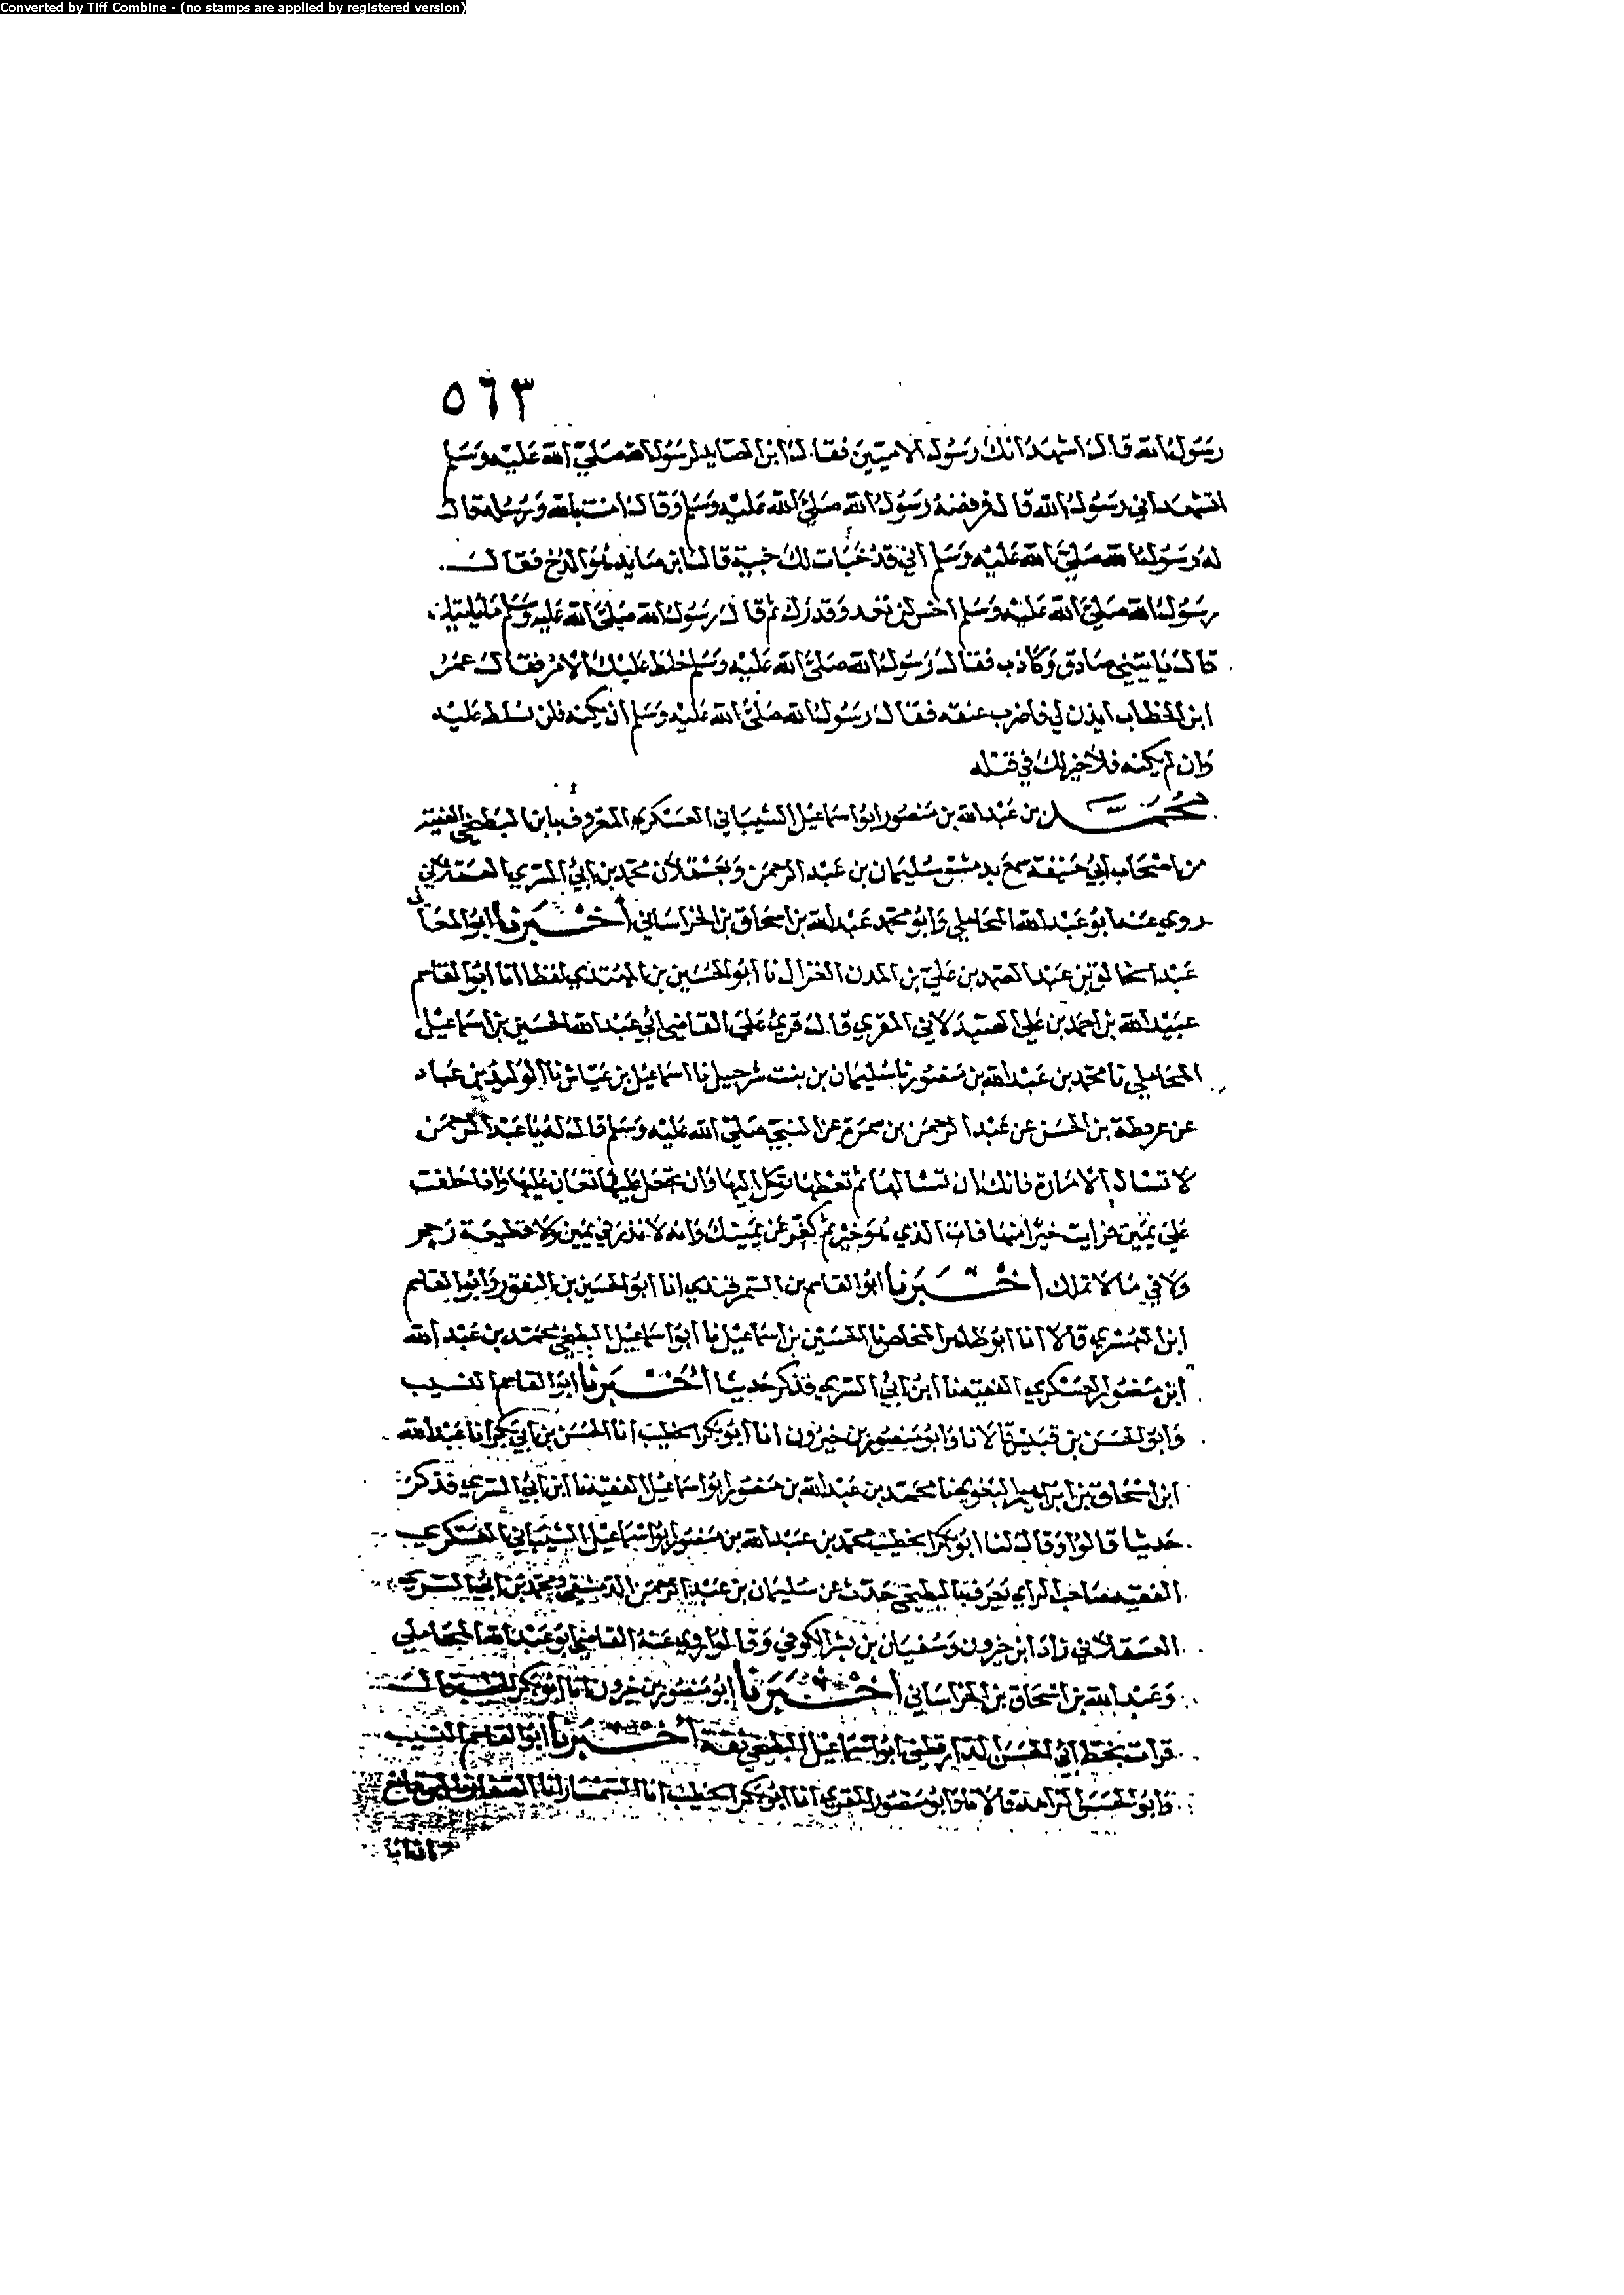 Converted by Tiff Combine - (no stamps are applied by registered version)
٥٦٣
رسول الله قال اشهد انك رسول الاميين فقال ابن الصايد لرسول الله صلى الله عليه وسلم
اتشهد اني رسول الله قال فرفضه رسول الله صلى الله عليه وسلم وقال امنت بالله وبرسله قال
له رسول الله صلى الله عليه وسلم اني قد خبات لك خبية قال ابن صايد هو الدخ فقال
رسول الله صلى الله عليه وسلم اخس لن تعد وقدرك ثم قال رسول الله صلى الله عليه وسلم
قال ياتيني صادق وكاذب فقال رسول الله صلى الله عليه وسلم خلط عليك الامر فقال عمر
ابن الخطاب ايذن لي فاضرب عنقه فقال رسول الله صلى الله عليه وسلم ان يكنه فلن تسلط عليه
وان لم يكنه فلا خير لك في قتله
محمد بن عبد الله بن منصور ابو اسماعيل الشيباني العسكري المعروف بابن البطيخي الفقيه
من اصحاب ابي حنيفة سمع بدمشق سليمان بن عبد الرحمن وبعسقلان محمد بن ابي السري العسقلاني
روى عنه ابو عبد الله المحاملي وابو محمد عبد الله بن اسحاق بن الخراساني اخبرنا ابو المعالى
عبد الخالق بن عبد الصمد بن علي بن البدن الغزال نا ابو الحسين بن المهتدي لفظا انا ابو القاسم
عبيد الله بن احمد بن علي الصيدلاني المقري قال قرئ على القاضي ابي عبد الله الحسين بن اسماعيل
المحاملي نا محمد بن عبد الله بن منصور نا سليمان بن بنت شرحبيل نا اسماعيل بن عياش نا الوليد بن عباد
عن عرفطة بن الحسن عن عبد الرحمن بن سمرة عن النبي صلى الله عليه وسلم قال له يا عبد الرحمن
لا تسال الامارة فانك ان تسالها ثم تعطها توكل اليها وان تحمل عليها تعان عليها واذا حلفت
على يمين فرايت خيرا منها فات الذي هو خير ثم كفر عن يمينك وانه لا نذر في يمين ولا قطيعة رحم
ولا في ما لا تملك اخبرنا ابو القاسم بن السمرقندي انا ابو الحسين بن النقور وابو القاسم
ابن البسري قالا انا ابو طاهر المخلص نا الحسين بن اسماعيل نا ابو اسماعيل البطيخي محمد بن عبد الله
ابن منصور العسكري الفقيه نا ابن ابي السري فذكر حديثا اخبرنا ابو القاسم النسيب
وابو الحسن بن قبيس قالا نا وابو منصور بن خيرون انا ابو بكر الخطيب انا الحسن بن ابي بكر انا عبد الله
ابن اسحاق بن ابراهيم البغوي نا محمد بن عبد الله بن منصور ابو اسماعيل الفقيه نا ابن ابي السري فذكر
حديثا قالوا وقال لنا ابو بكر الخطيب محمد بن عبد الله بن منصور ابو اسماعيل الشيباني العسكري
الفقيه صاحب الراي يعرف بالبطيخي حدث عن سليمان بن عبد الرحمن الدمشقي ومحمد بن ابي السري
العسقلاني زاد ابن خيرون وسفيان بن بشر الكوفي وقالوا روى عنه القاضي ابو عبد الله المحاملي
وعبد الله بن اسحاق بن الخراساني اخبرنا ابو منصور بن خيرون انا ابو بكر الخطيب قال
قرات بخط ابي الحسن الدارقطني ابو اسماعيل البطيخي ثقة اخبرنا ابو القاسم النسيب
وابو الحسن الزاهد قالا نا وابو منصور المقري انا ابو بكر الخطيب انا السمسار انا الصفار نا ابن قانع